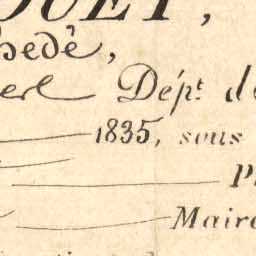 OUET,
hedê,
erl Dépt. d
1835, sous
P
Maire